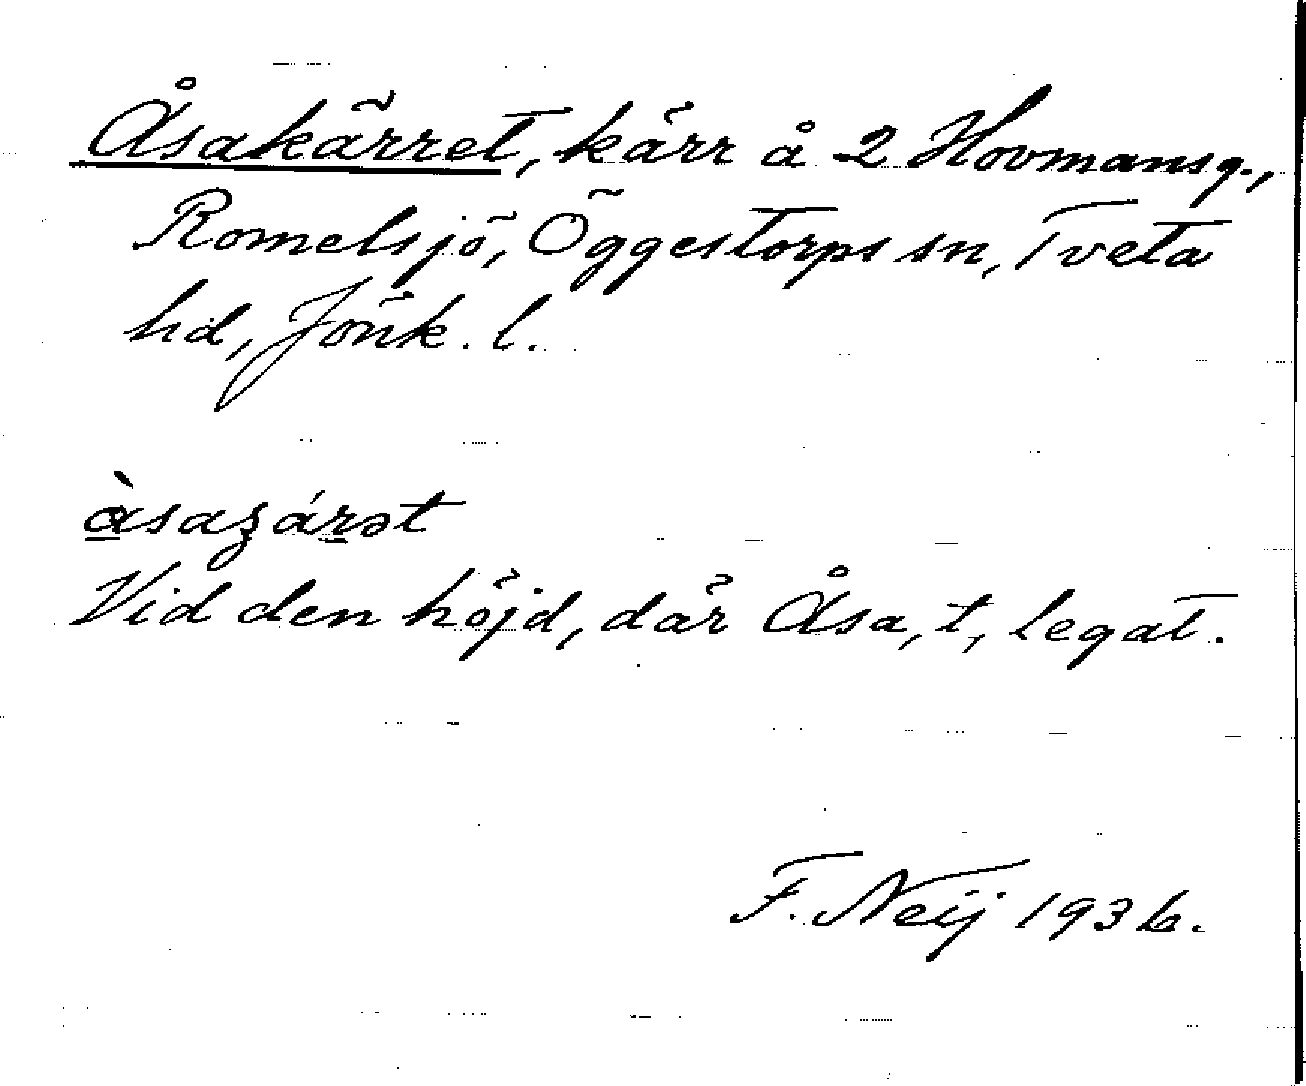 Åsakärret, kärr å 2 Hovmansg.,
Romelsjö, Öggestorps sn, Tveta
hd, Jönk. l.
àsaʒárət
Vid den höjd, där Åsa, t, legat.
F. Neij 1936.